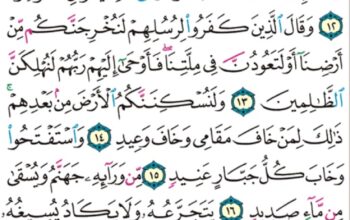 ١٢ وَقَالَ ٱلَّذِينَ كَفَرُواْ لِرُسُلِهِمْ لَنُخْرِجَنَّكُم مِّنْ
أَرْضِنَآ أَوْ لَتَعُودُنَّ فِى مِلَّتِنَا ۖ فَأَوْحَىٰٓ إِلَيْهِمْ رَبُّهُمْ لَنُهْلِكَنَّ
ٱلظَّـٰلِمِينَ ١٣ وَلَنُسْكِنَنَّكُمُ ٱلْأَرْضَ مِنۢ بَعْدِهِمْ ۚ
ذَٰلِكَ لِمَنْ خَافَ مَقَامِى وَخَافَ وَعِيدِ ١٤ وَٱسْتَفْتَحُواْ
وَخَابَ كُلُّ جَبَّارٍ عَنِيدٍ ١٥ مِّن وَرَآئِهِۦ جَهَنَّمُ وَيُسْقَىٰ
مِن مَّآءٍ صَدِيدٍ ١٦ يَتَجَرَّعُهُۥ وَلَا يَكَادُ يُسِيغُهُۥ